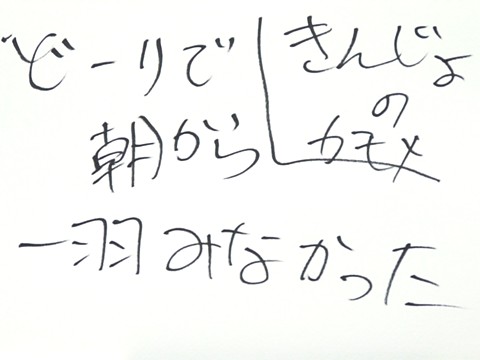 どーりで
朝から
きんじょ
の
カモメ
一羽みなかった